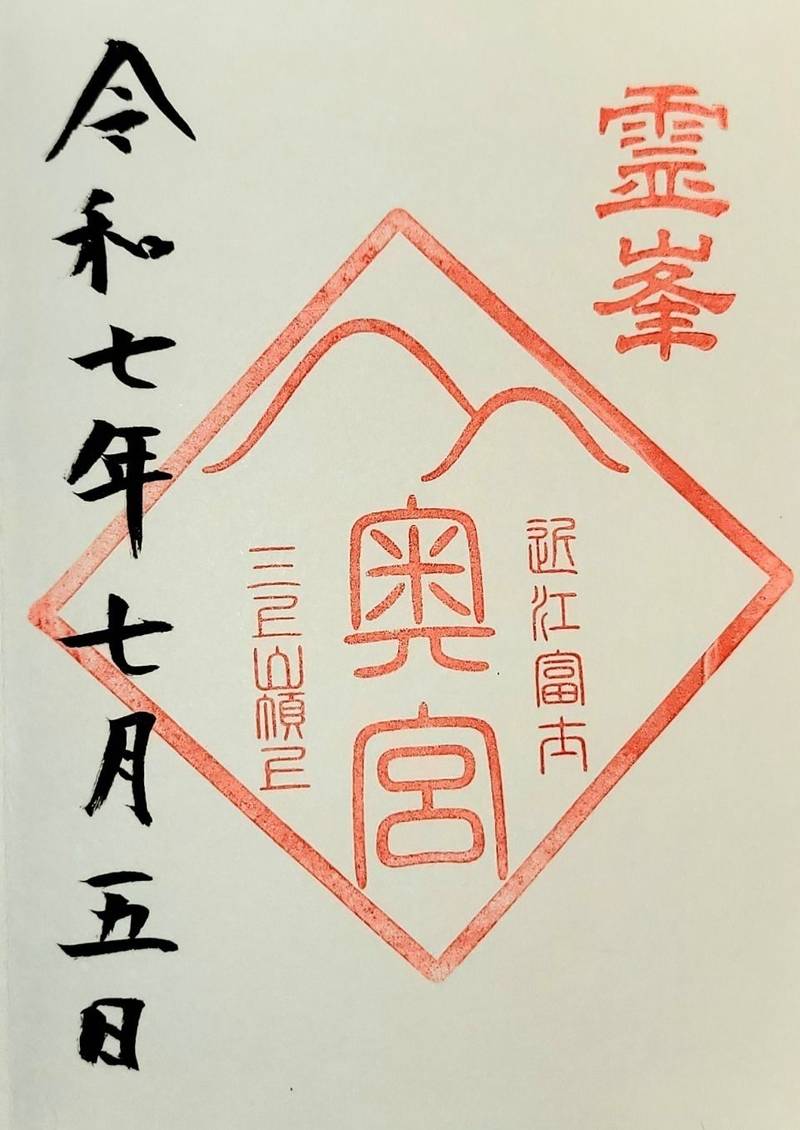 霊峯
近江富士
奥宮
三上山頂上
令和七年七月五日